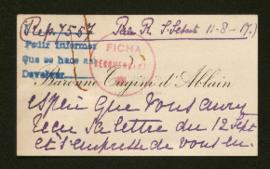 Rep. 7557
R. S. 11-8-17.)
Pedir informes
Que se hace
Devolver
FICHA
Baronne Eugène d'Ablain
espère que vous aurez
reçu sa lettre du 12 Sept
et s'empresse de vous en